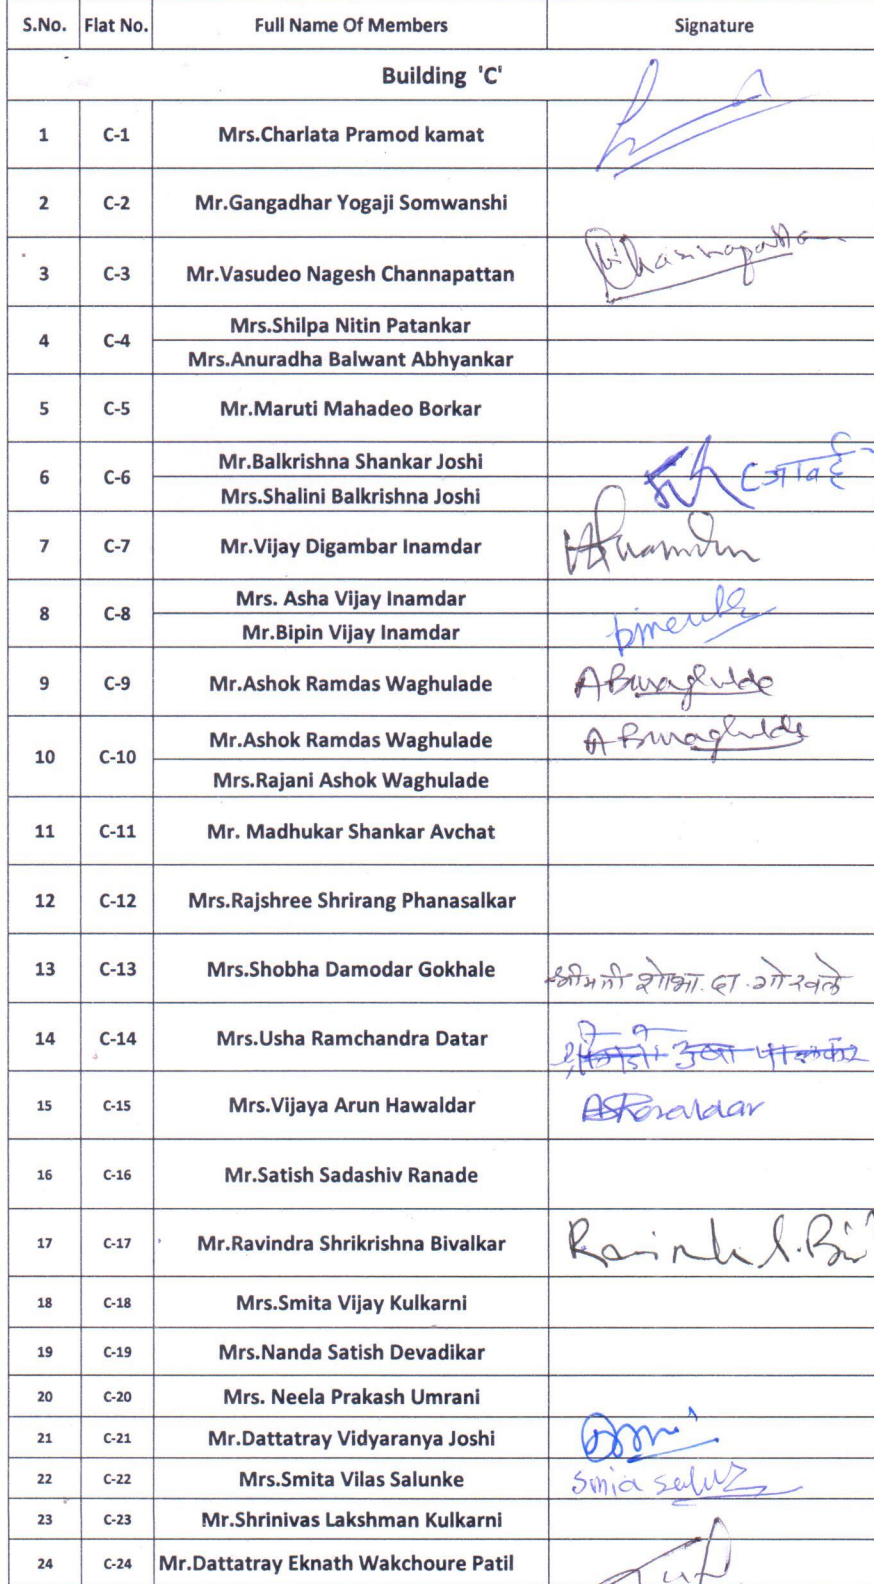 S.No. Flat No. Full Name Of Members Signature
Building 'C'
1 C-1 Mrs.Charlata Pramod kamat
2 C-2 Mr.Gangadhar Yogaji Somwanshi
3 C-3 Mr.Vasudeo Nagesh Channapattan Channapattan
4 C-4 Mrs.Shilpa Nitin Patankar
Mrs.Anuradha Balwant Abhyankar
5 C-5 Mr.Maruti Mahadeo Borkar
6 C-6 Mr.Balkrishna Shankar Joshi
Mrs.Shalini Balkrishna Joshi
7 C-7 Mr.Vijay Digambar Inamdar
8 C-8 Mrs. Asha Vijay Inamdar
Mr.Bipin Vijay Inamdar
9 C-9 Mr.Ashok Ramdas Waghulade ABwaghulde
10 C-10 Mr.Ashok Ramdas Waghulade A Bwaghulde
Mrs.Rajani Ashok Waghulade
11 C-11 Mr. Madhukar Shankar Avchat
12 C-12 Mrs.Rajshree Shrirang Phanasalkar
13 C-13 Mrs.Shobha Damodar Gokhale श्रीमती शोभा. दा. गोखले
14 C-14 Mrs.Usha Ramchandra Datar
15 C-15 Mrs.Vijaya Arun Hawaldar
16 C-16 Mr.Satish Sadashiv Ranade
17 C-17 Mr.Ravindra Shrikrishna Bivalkar
18 C-18 Mrs.Smita Vijay Kulkarni
19 C-19 Mrs.Nanda Satish Devadikar
20 C-20 Mrs. Neela Prakash Umrani
21 C-21 Mr.Dattatray Vidyaranya Joshi
22 C-22 Mrs.Smita Vilas Salunke
23 C-23 Mr.Shrinivas Lakshman Kulkarni
24 C-24 Mr.Dattatray Eknath Wakchoure Patil